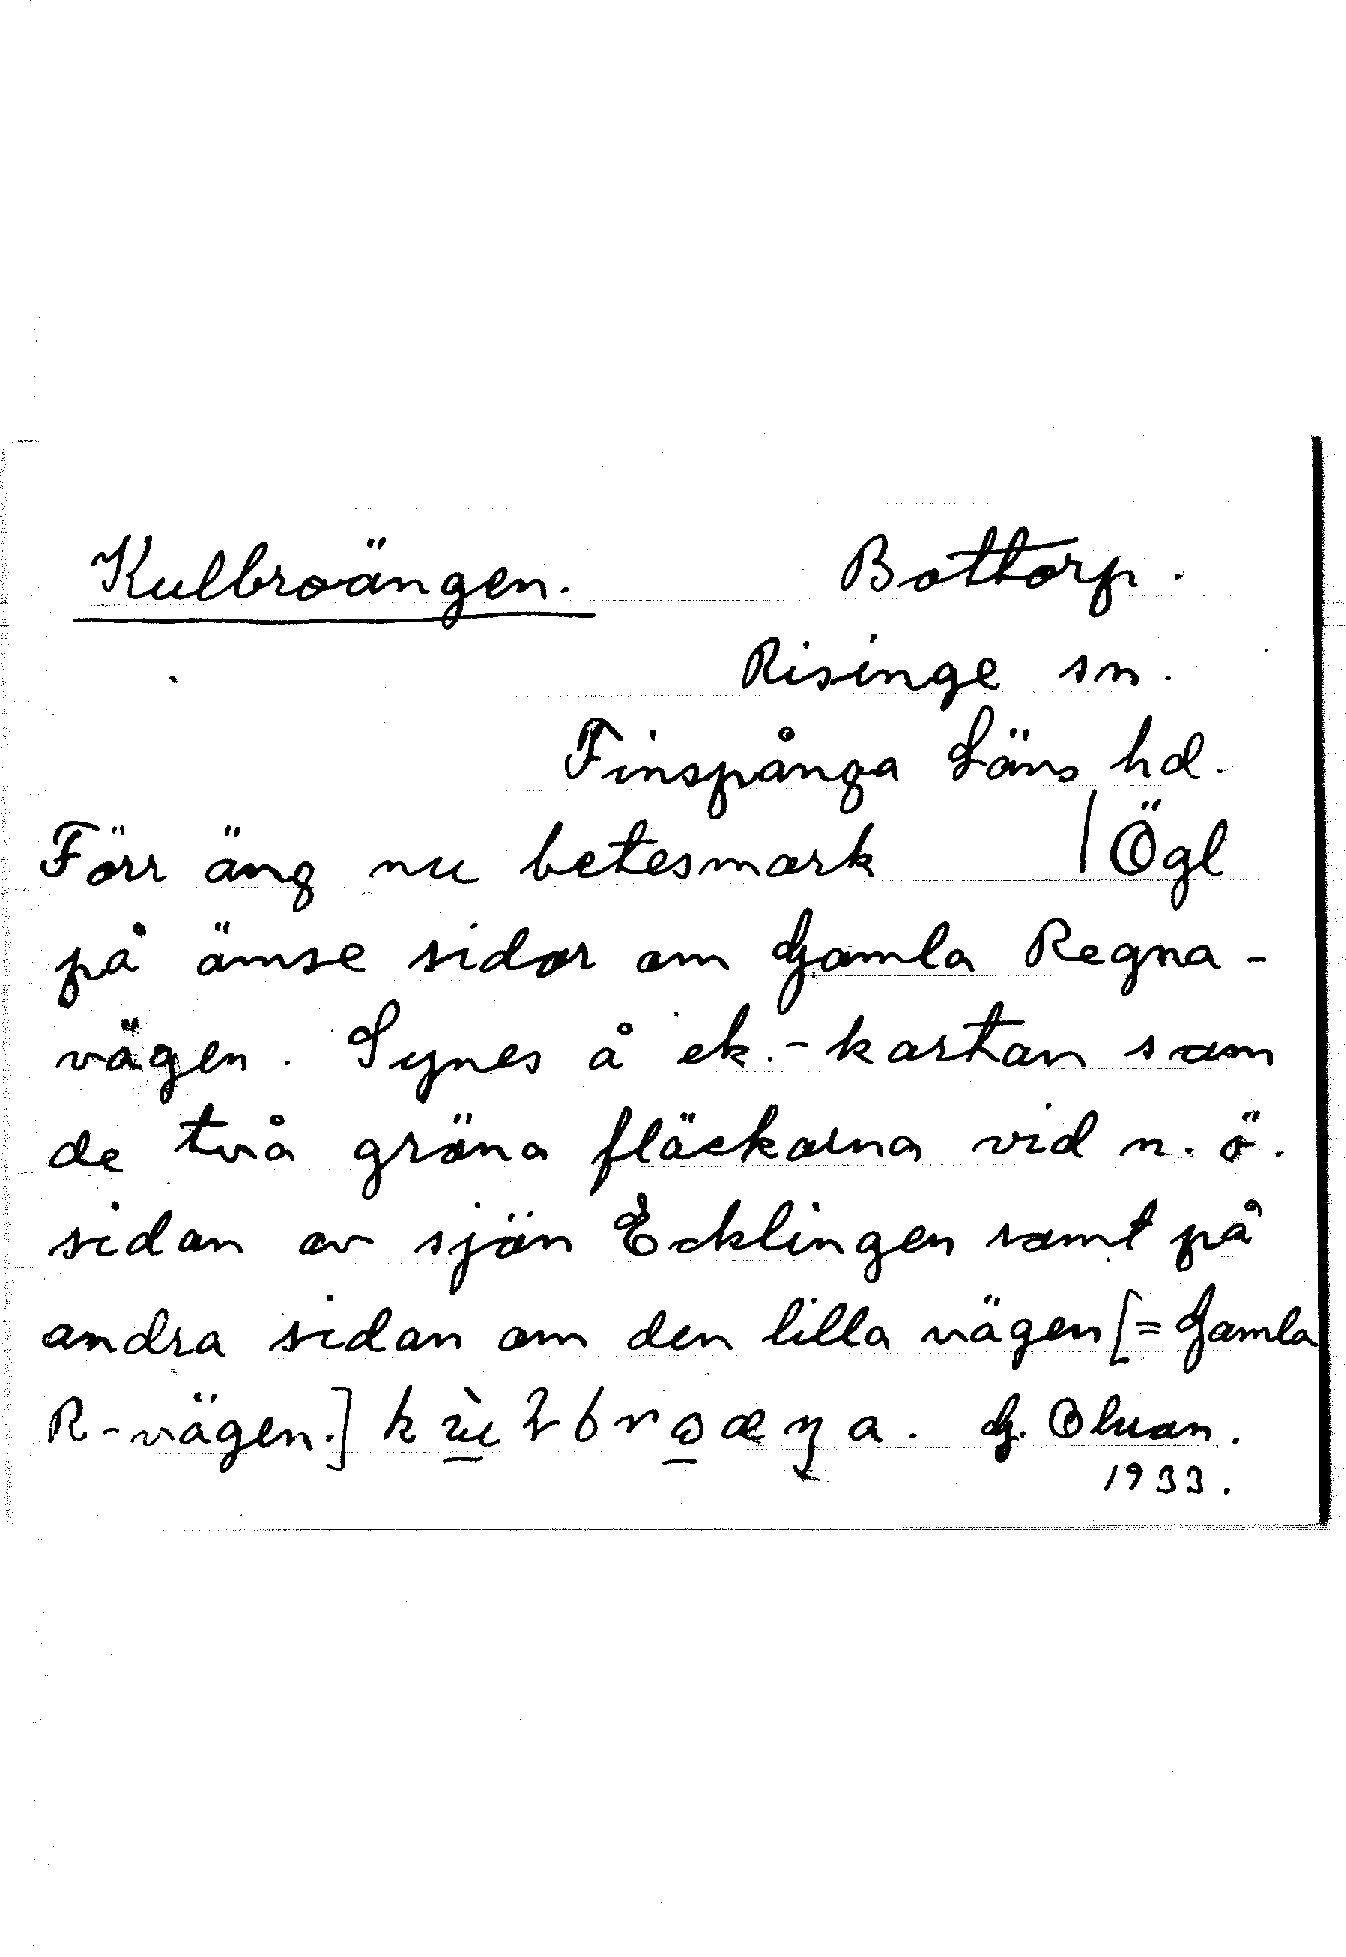 Kulbroängen. Bottorp.
Risinge sn.
Finspånga Läns hd.
Förr äng nu betesmark | Ögl
på ömse sidor om Gamla Regna-
vägen. Synes å ek.-kartan som
de två gröna fläckarna vid n.ö.
sidan av sjön Ecklingen samt på
andra sidan om den lilla vägen [= Gamla
R-vägen.] G. Olson.
1933.